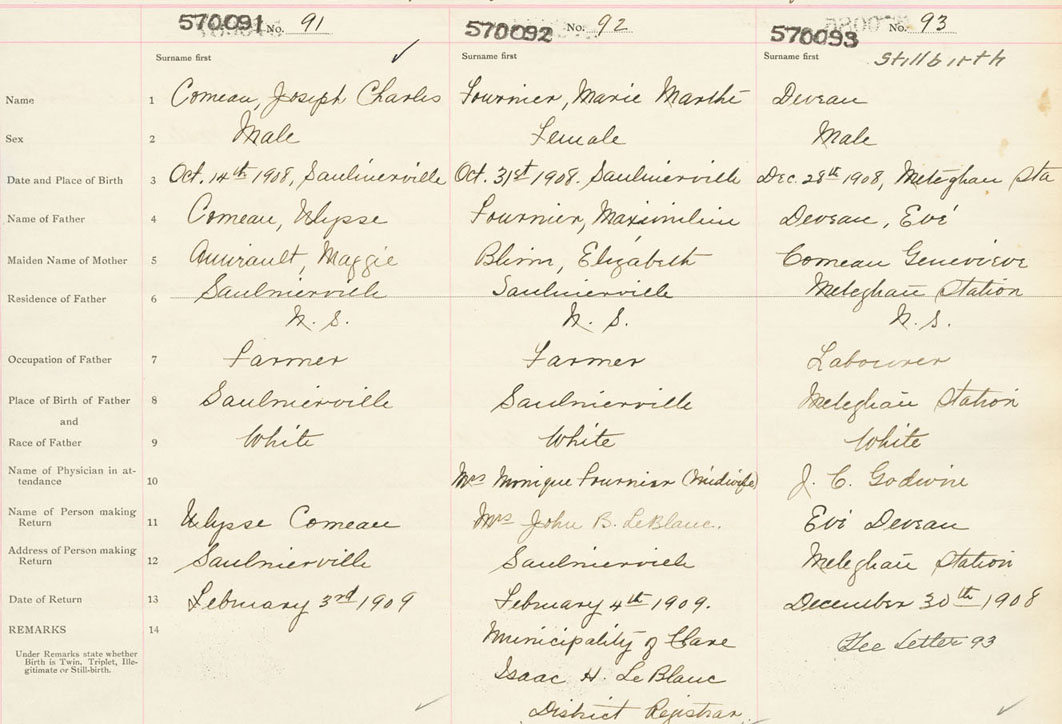 570091 No. 91
570092 No. 92
570093 No. 93
Surname first
Surname first
Surname first Stillbirth
Name 1 Comeau, Joseph Charles Fournier, Marie Marthe Deveau
Sex 2 Male Female Male
Date and Place of Birth 3 Oct. 14th 1908, Saulnierville Oct. 31st 1908. Saulnierville Dec. 28th 1908, Meteghan Sta
Name of Father 4 Comeau, Ulysse Fournier, Maximilien Deveau, Evé
Maiden Name of Mother 5 Amirault, Maggie Elizabeth Comeau Genevieve
Residence of Father 6 Saulnierville Saulnierville Meteghan Station
N. S. N. S. N. S.
Occupation of Father 7 Farmer Farmer Labourer
Place of Birth of Father 8 Saulnierville Saulnierville Meteghan Station
and
Race of Father 9 White White White
Name of Physician in at-
tendance 10 Mrs Monique Fournier (Midwife) J. C. Godwin
Name of Person making
Return 11 Ulysse Comeau Mrs John B. LeBlanc. Evé Deveau
Address of Person making
Return 12 Saulnierville Saulnierville Meteghan Station
Date of Return 13 February 3rd 1909 February 4th 1909. December 30th 1908
REMARKS 14 Municipality of Clare See Letter 93
Under Remarks state whether
Birth is Twin, Triplet, Ille-
gitimate or Still-birth.
Isaac H. LeBlanc
District Registrar